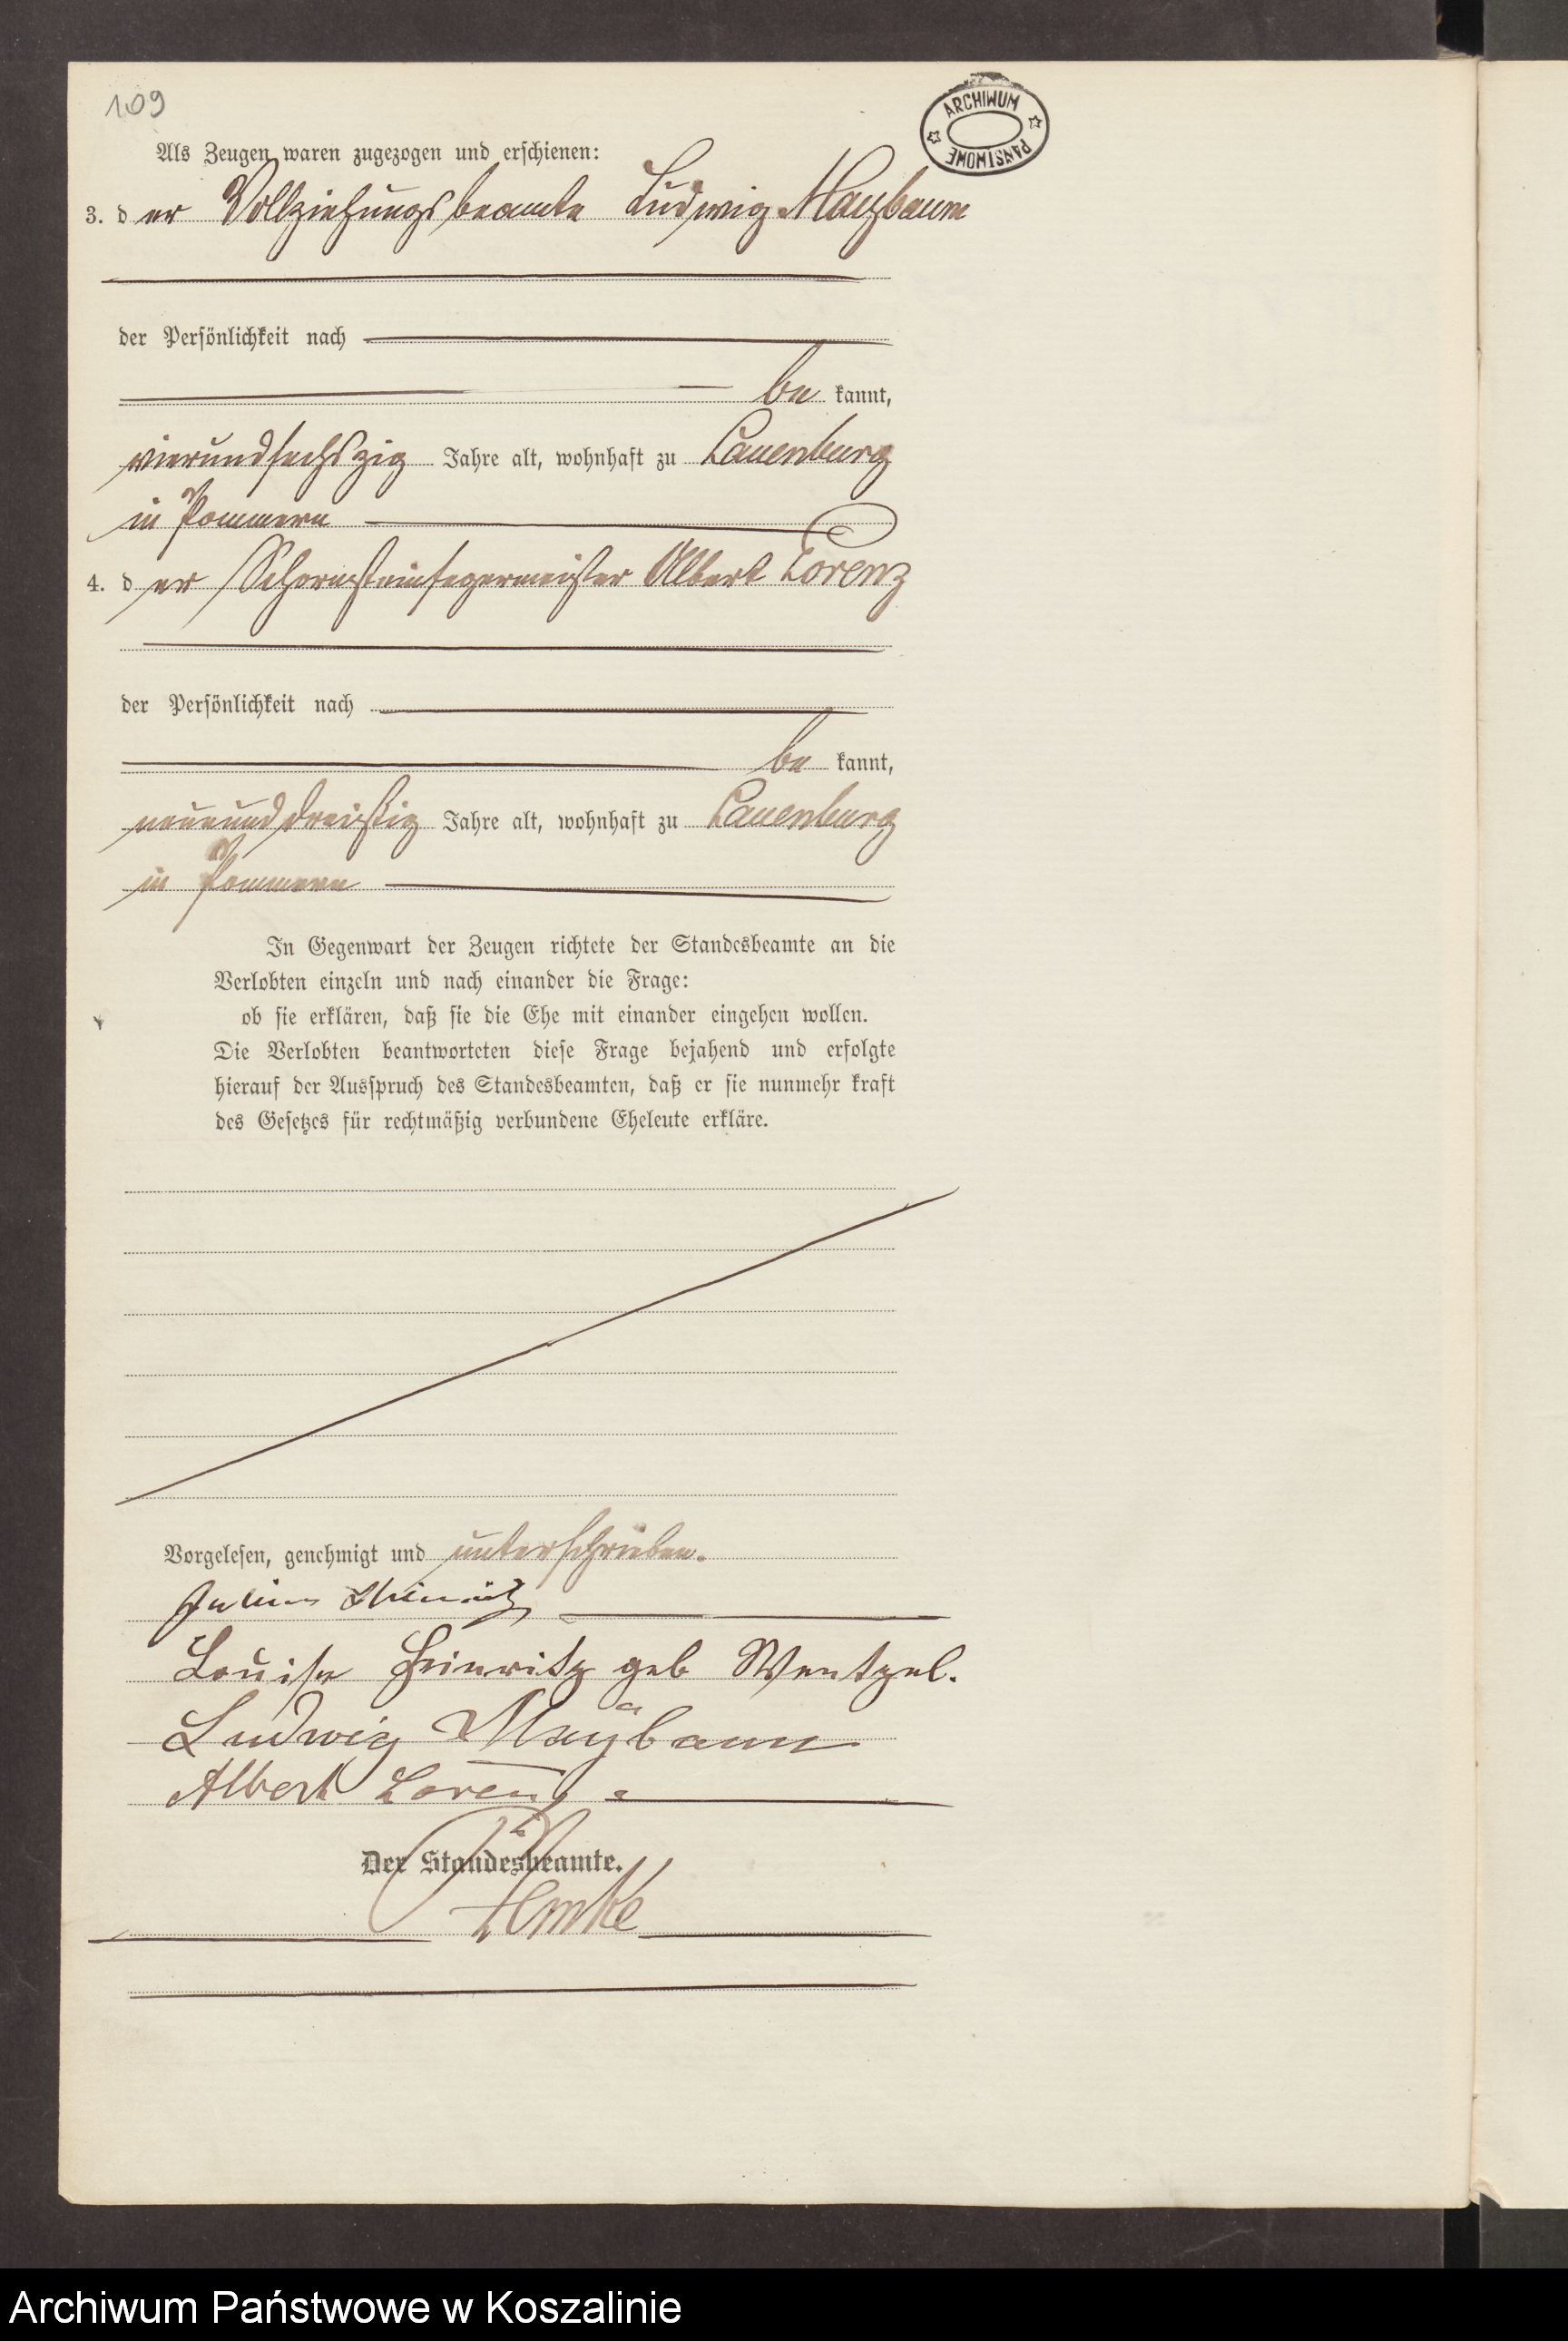 109
ARCHIWUM PAŃSTWOWE
Als Zeugen waren zugezogen und erschienen:
3. der Vollziehungsbeamte Ludwig Maybaum
der Persönlichkeit nach
be kannt,
vierundsechszig Jahre alt, wohnhaft zu Lauenburg
in Pommern
4. der Schornsteinfegermeister Albert Lorenz
der Persönlichkeit nach
be kannt,
neununddreißig Jahre alt, wohnhaft zu Lauenburg
in Pommern
In Gegenwart der Zeugen richtete der Standesbeamte an die
Verlobten einzeln und nach einander die Frage:
ob sie erklären, daß sie die Ehe mit einander eingehen wollen.
Die Verlobten beantworteten diese Frage bejahend und erfolgte
hierauf der Ausspruch des Standesbeamten, daß er sie nunmehr kraft
des Gesetzes für rechtmäßig verbundene Eheleute erkläre.
Vorgelesen, genehmigt und unterschrieben.
Julius Heinritz
Louise Heinritz geb Wentzel.
Ludwig Maÿbaum
Albert Lorenz.
Der Standesbeamte.
Archiwum Państwowe w Koszalinie